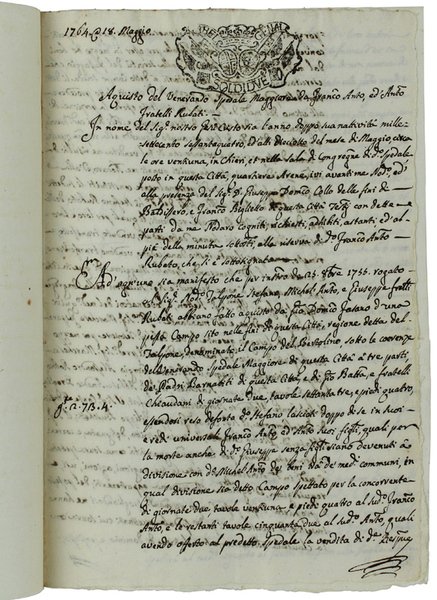 1764. @ 18. Maggio
SOLDI DVE
Aquisto del Venerando Spedale Maggiore da Franco Anto, ed Anto
Fratelli Rubati.
In nome del Sigr nostro Gesù Cristo sia l'anno doppo sua natività mille-
settecento sessantequattro, ed alli dieciotto del mese di Maggio, circa
le ore ventiuna, in Chieri, et nella Sala di Congregne di do Spedale
posto in questa Città, quartiere Arene, ivi avanti me Nodo, ed
alla presenza del Sigr D. Giuseppe Domco Collo delle fini di
Baldissero, e Franco Biglietto di questa Città Testj con dette
parti da me Nodaro cogniti, richiesti, adhibiti, astanti, ed al
piè della minuta sottotti, alla riserva di do Franco Anto
Rubato, che si è sottosegnato
Ad ogn'uno sia manifesto che per instro dei 23. 1755. rogato
Sigr Nodo Stefano, Michel Anto, e Giuseppe fratelli
Rubati abbiano fatto aquisto da Domco d'una
pezza Campo sito nelle fini di questa Città, regione detta del
denominato il Campo del sotto le coerenze
del Venerando Spedale Maggiore di questa Città a tre parti,
dei Padri Barnabiti di questa Città, e di Gio Batta, e fratelli
di giornate due, tavole settantatre, e piedi quattro,
G. 2. 73. 4.
essendosi reso defonto do Stefano lasciati doppo di se in suoi
eredi universali Franco Anto, ed Anto suoi figli, quali per
la morte anche di do Giuseppe senza figli siano devenuti a
divisione con do Michel Anto dei beni da de' medi communi, in
qual divisione sia detto Campo spettato per la concorrente
di giornate due tavole ventuna e piedi quattro al sudo Franco
Anto, e le restanti tavole cinquanta due al sudo Anto, quali
avendo offerto al predetto Spedale la vendita di da